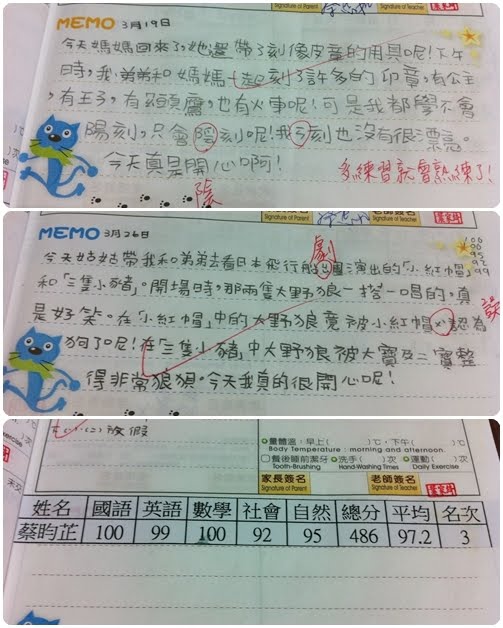 Signature of Parent
Signature of Teacher
MEMO 3月19日
今天媽媽回來了,她還帶了刻像皮章的用具呢!下午
時,我、弟弟和媽媽一起刻了許多的印章,有公主
,有王子,有貓頭鷹,也有火車呢!可是我都學不會
陽刻,只會陰刻呢!我刻也沒有很漂亮。
今天真是開心啊!
陰
多練習就會熟練了!
Signature of Parent
老師簽名
Signature of Teacher
MEMO 3月26日
劇
今天姑姑帶我和弟弟去看日本飛行船出團演出的「小紅帽」
和「三隻小豬」。開場時,那兩隻大野狼一搭一唱的,真
是好笑。在「小紅帽」中的大野狼竟被小紅帽認為
狗了呢!在「三隻小豬」中大野狼被大寶及二寶整
得非常狼狽。今天我真的很開心呢!
放假
量體溫:早上( )℃,下午( )℃
Body Temperature : morning and afternoon.
餐後睡前潔牙 洗手( )次 運動( )次
Tooth-Brushing Hand-Washing Times Daily Exercise
家長簽名
Signature of Parent
老師簽名
Signature of Teacher
姓名 國語 英語 數學 社會 自然 總分 平均 名次
蔡昀芷 100 99 100 92 95 486 97.2 3